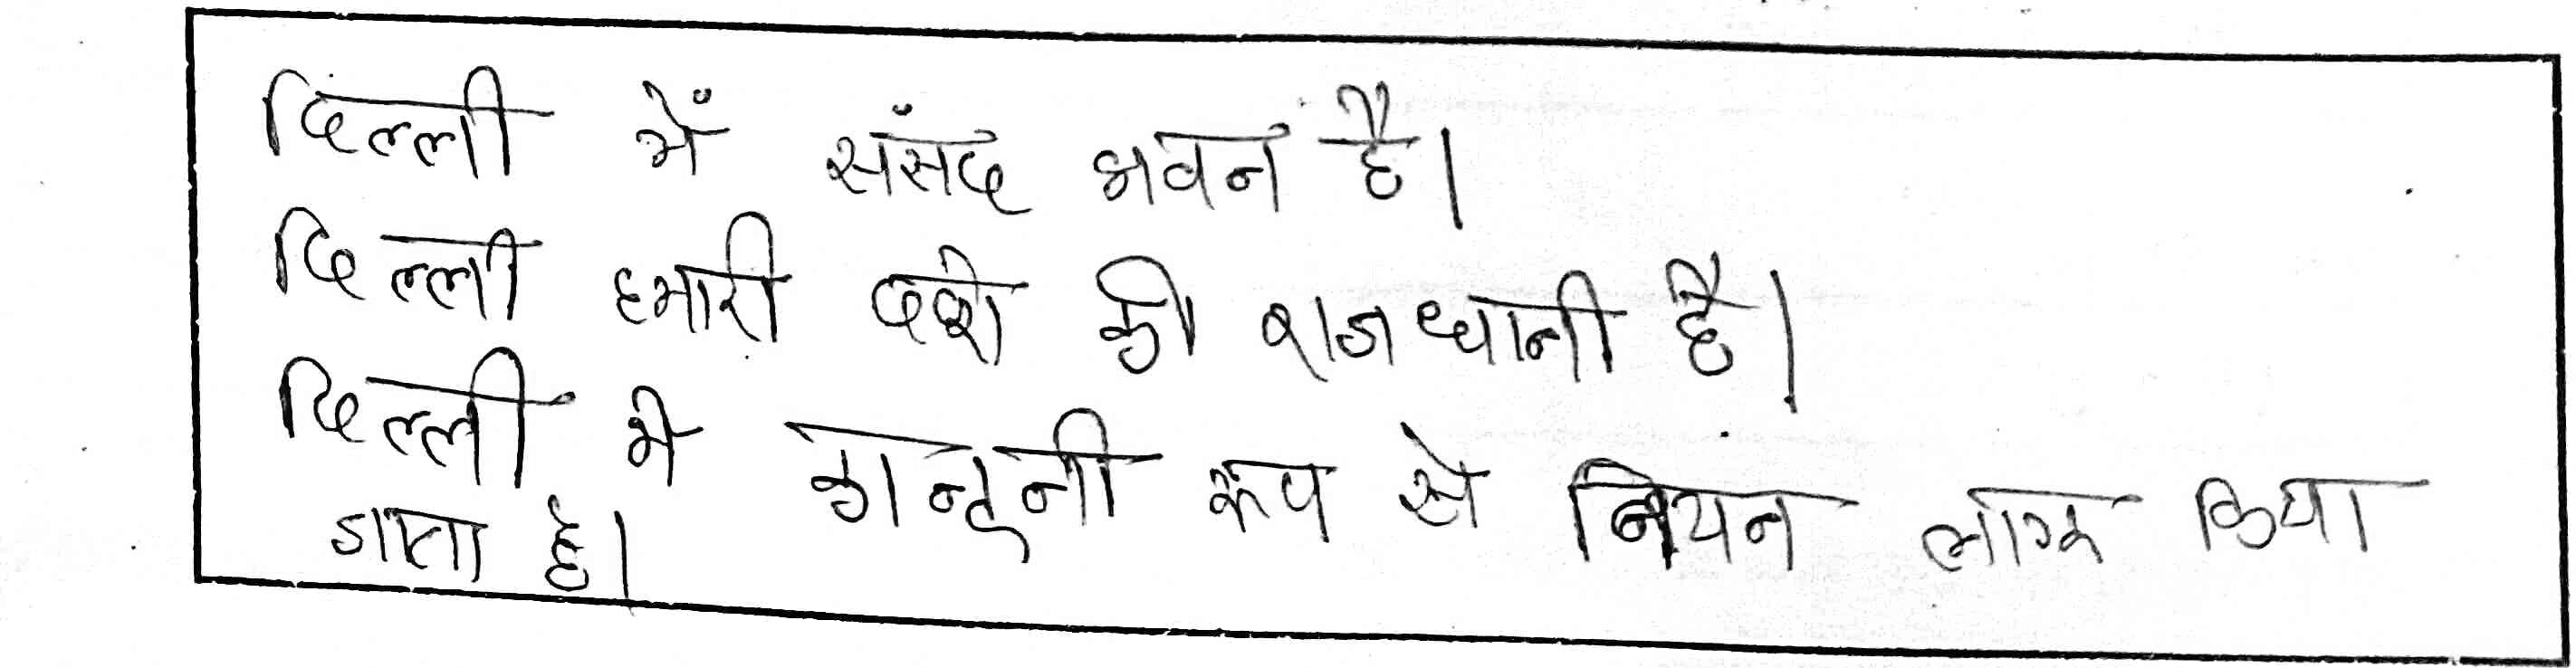 दिल्ली में संसद भवन है।
दिल्ली हमारी दशे की राजधानी है।
दिल्ली मे कानूनी रूप से नियन लागू किया
जाता है।